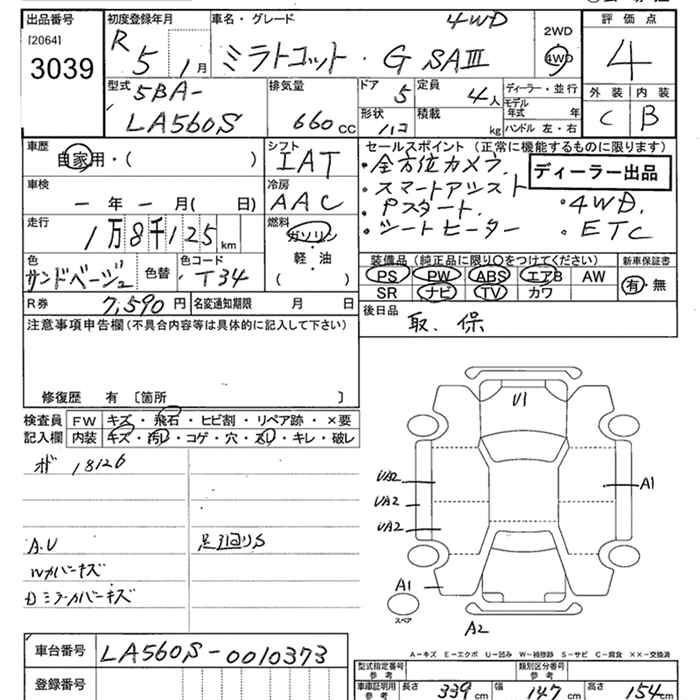 出品番号 初度登録年月 車名・グレード 4WD 2WD 評価点
[2064] R 5 1月 ミラトコット・G SAⅢ 4WD 4
3039
型式 5BA- 排気量 ドア 5 定員 4人 ディーラー・並行 外装 内装
LA560S 660cc 形状 ハコ 積載 kg モデル年式 年 C B
ハンドル 左・右
車歴 自家用・( ) シフト IAT セールスポイント (正常に機能するものに限ります)
・全方位カメラ. ディーラー出品
車検 ー年ー月( 日) 冷房 AAC ・スマートアシスト
・Pスタート. ・4WD.
走行 1万8千125km 燃料 ガソリン・軽・油 ( ) ・シートヒーター ・ETC
色 サンドベージュ 色替 色コード T34 装備品 (純正品に限り○をつけてください) 新車保証書
PS PW ABS エアB AW 有・無
SR ナビ TV カワ
R券 7,590円 名変通知期限 月 日 後日品
取.保
注意事項申告欄 (不具合内容等は具体的に記入して下さい)
修復歴 有 〔箇所 〕
検査員 FW キズ・飛石・ヒビ割・リペア跡・×要
記入欄 内装 キズ・汚レ・コゲ・穴・スレ・キレ・破レ
18126
U1
UA2
UA2
UA2
A1
A.U
足引回りS
A1
スペア
A2
A－キズ E－エクボ U－凹み W－補修跡 S－サビ C－腐食 ××－交換済
車台番号 LA560S-0010373
型式指定番号 参考 類別区分番号 参考
登録番号 車庫証明用 参考 長さ 339cm 幅 147cm 高さ 154cm